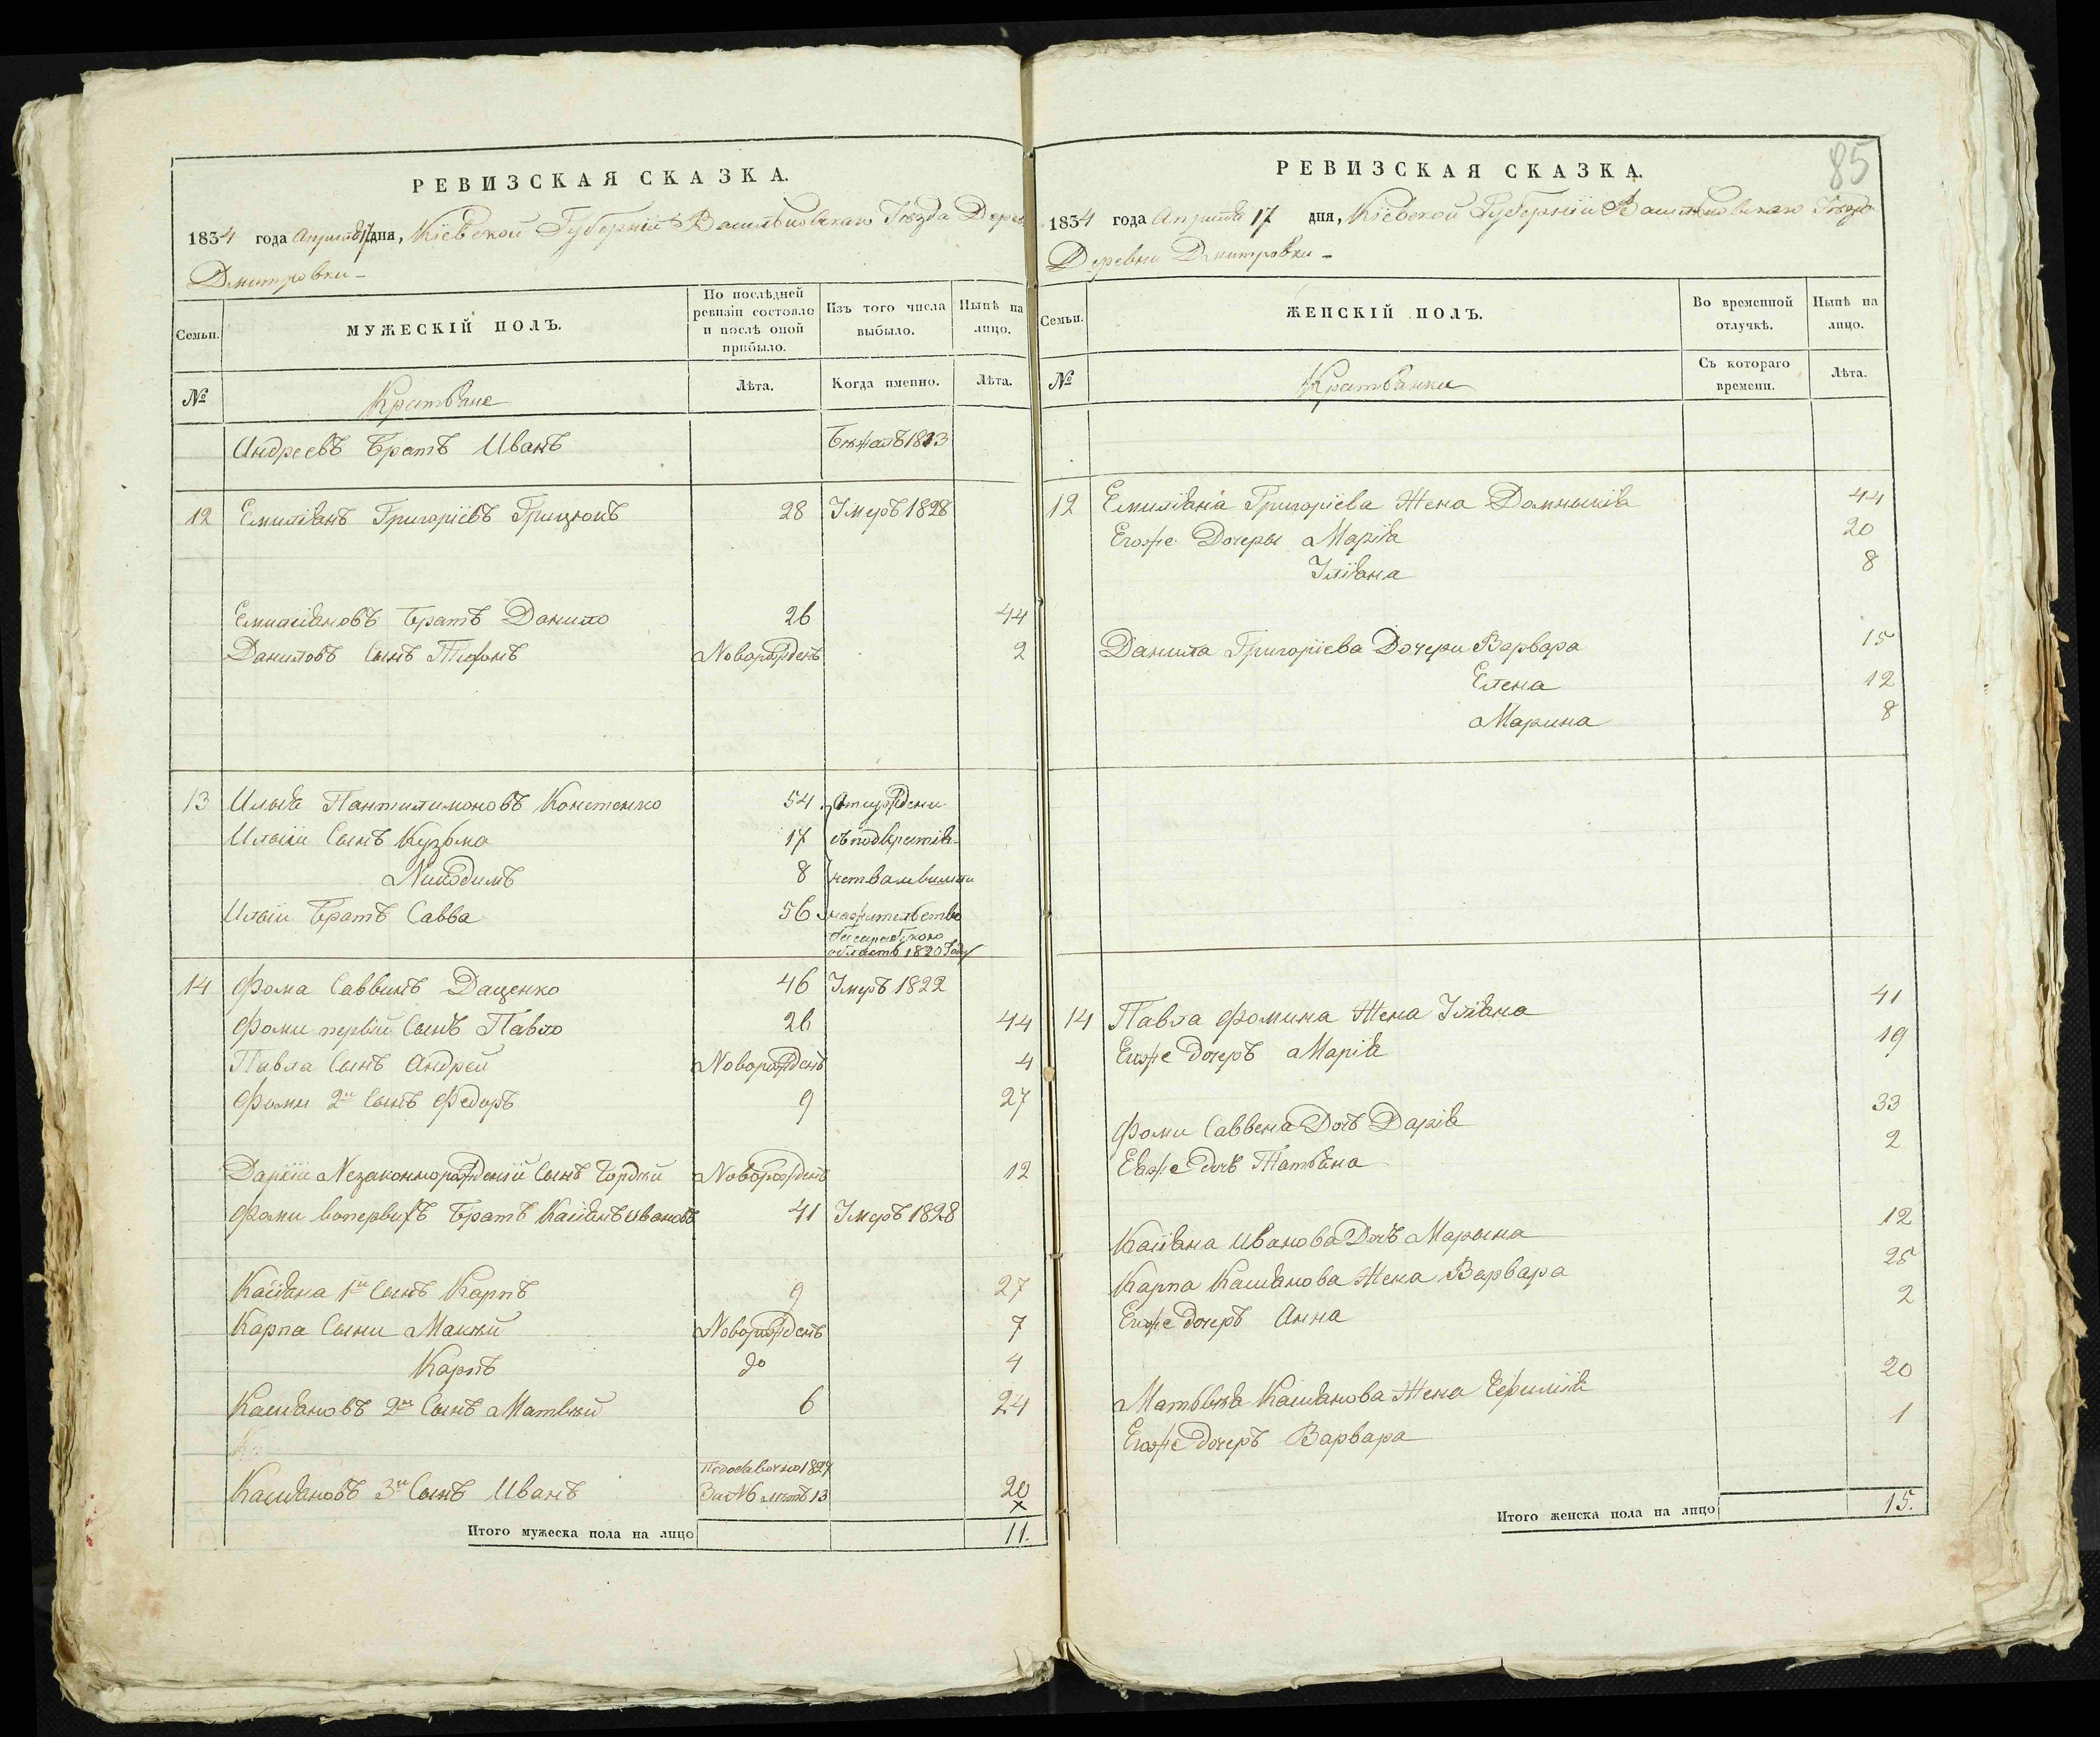 РЕВИЗСКАЯ СКАЗКА.
1834 года Апреля 17 дня, Кіевской Губерніи Васильковскаго Уезда Дерев
Дмитровки -
Семьи.
МУЖЕСКІЙ ПОЛЪ.
По послѣдней ревизіи состояло и послѣ оной прибыло.
Изъ того числа выбыло.
Нынѣ на лицо.
№
Крестьяне
Лѣта.
Когда именно.
Лѣта.
Андреевъ Братъ Иванъ Бѣжалъ 1813
12 Емиліянъ Григоріевъ Грицюкъ 28 Умеръ 1828
Емиліяновъ Братъ Данило 26 44
Даниловъ Сынъ Тифонъ Новорожденъ 2
13 Илья Пантилимоновъ Костенко 54
Ильи Сынъ Кузьма 17
Никодимъ 8
Ильи Братъ Савва 56 на жительство
область 1820 Году
14 Фома Саввинъ Даценко 46 Умеръ 1822
Фоми первій Сынъ Павло 26 44
Павла Сынъ Андрей Новорожденъ 4
Фоми 2й Сынъ Федоръ 9 27
Даріи Незаконнорожденій Сынъ Гордѣй Новорожденъ 12
Фоми вопервыхъ Братъ Касіянъ Ивановъ 41 Умеръ 1828
Касіяна 1й Сынъ Карпъ 9 27
Карпа Сыни Макѣй Новорожденъ 7
Карпъ до 4
Касіяновъ 2й Сынъ Матвѣй 6 24
Касіяновъ 3й Сынъ Иванъ
1827
За № лѣтъ 13
20
×
Итого мужеска пола на лицо 11.
85
РЕВИЗСКАЯ СКАЗКА.
1834 года Апреля 17 дня, Кіевской Губерніи Васильковскаго Уезда
Деревни Дмитровки -
Семьи.
ЖЕНСКІЙ ПОЛЪ.
Во временной отлучкѣ.
Нынѣ на лицо.
№
Крестьянки
Съ котораго времени.
Лѣта.
12 Емиліяна Григоріева Жена Домникія 44
Егоже Дочеры Марія 20
Уліяна 8
Данила Григоріева Дочери Варвара 15
Елена 12
Марина 8
14 Павла Фомина Жена Уліяна 41
Егоже дочеръ Марія 19
Фоми Саввена Дочъ Дарія 33
Еяже дочъ Татіяна 2
Касіяна Иванова Дочъ Марына 12
Карпа Касіянова Жена Варвара 25
Егоже дочеръ Анна 2
Матвѣя Касіянова Жена Ефимія 20
Егоже дочеръ Варвара 1
Итого женска пола на лицо 15.